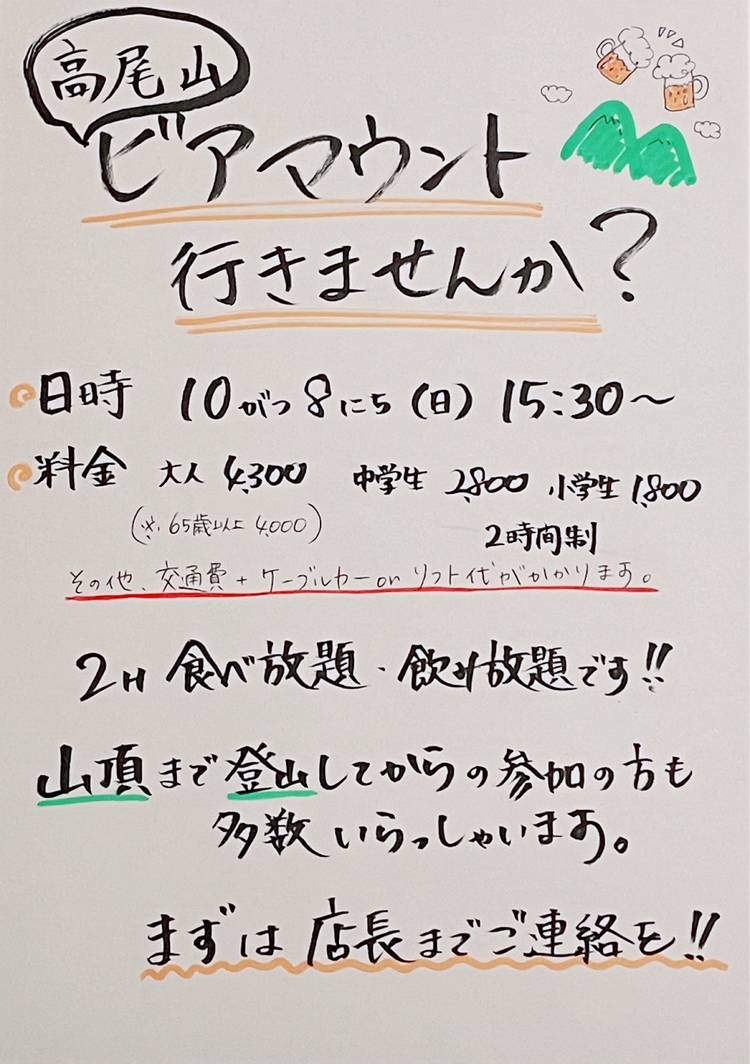 高尾山
ビアマウント
行きませんか?
日時 10がつ8にち(日) 15:30〜
料金 大人 4,300 中学生 2,800 小学生 1,800
(※65歳以上 4,000)
2時間制
その他、交通費+ケーブルカーorリフト代がかかります。
2H 食べ放題・飲み放題です!!
山頂まで登山してからの参加の方も
多数いらっしゃいます。
まずは店長までご連絡を!!